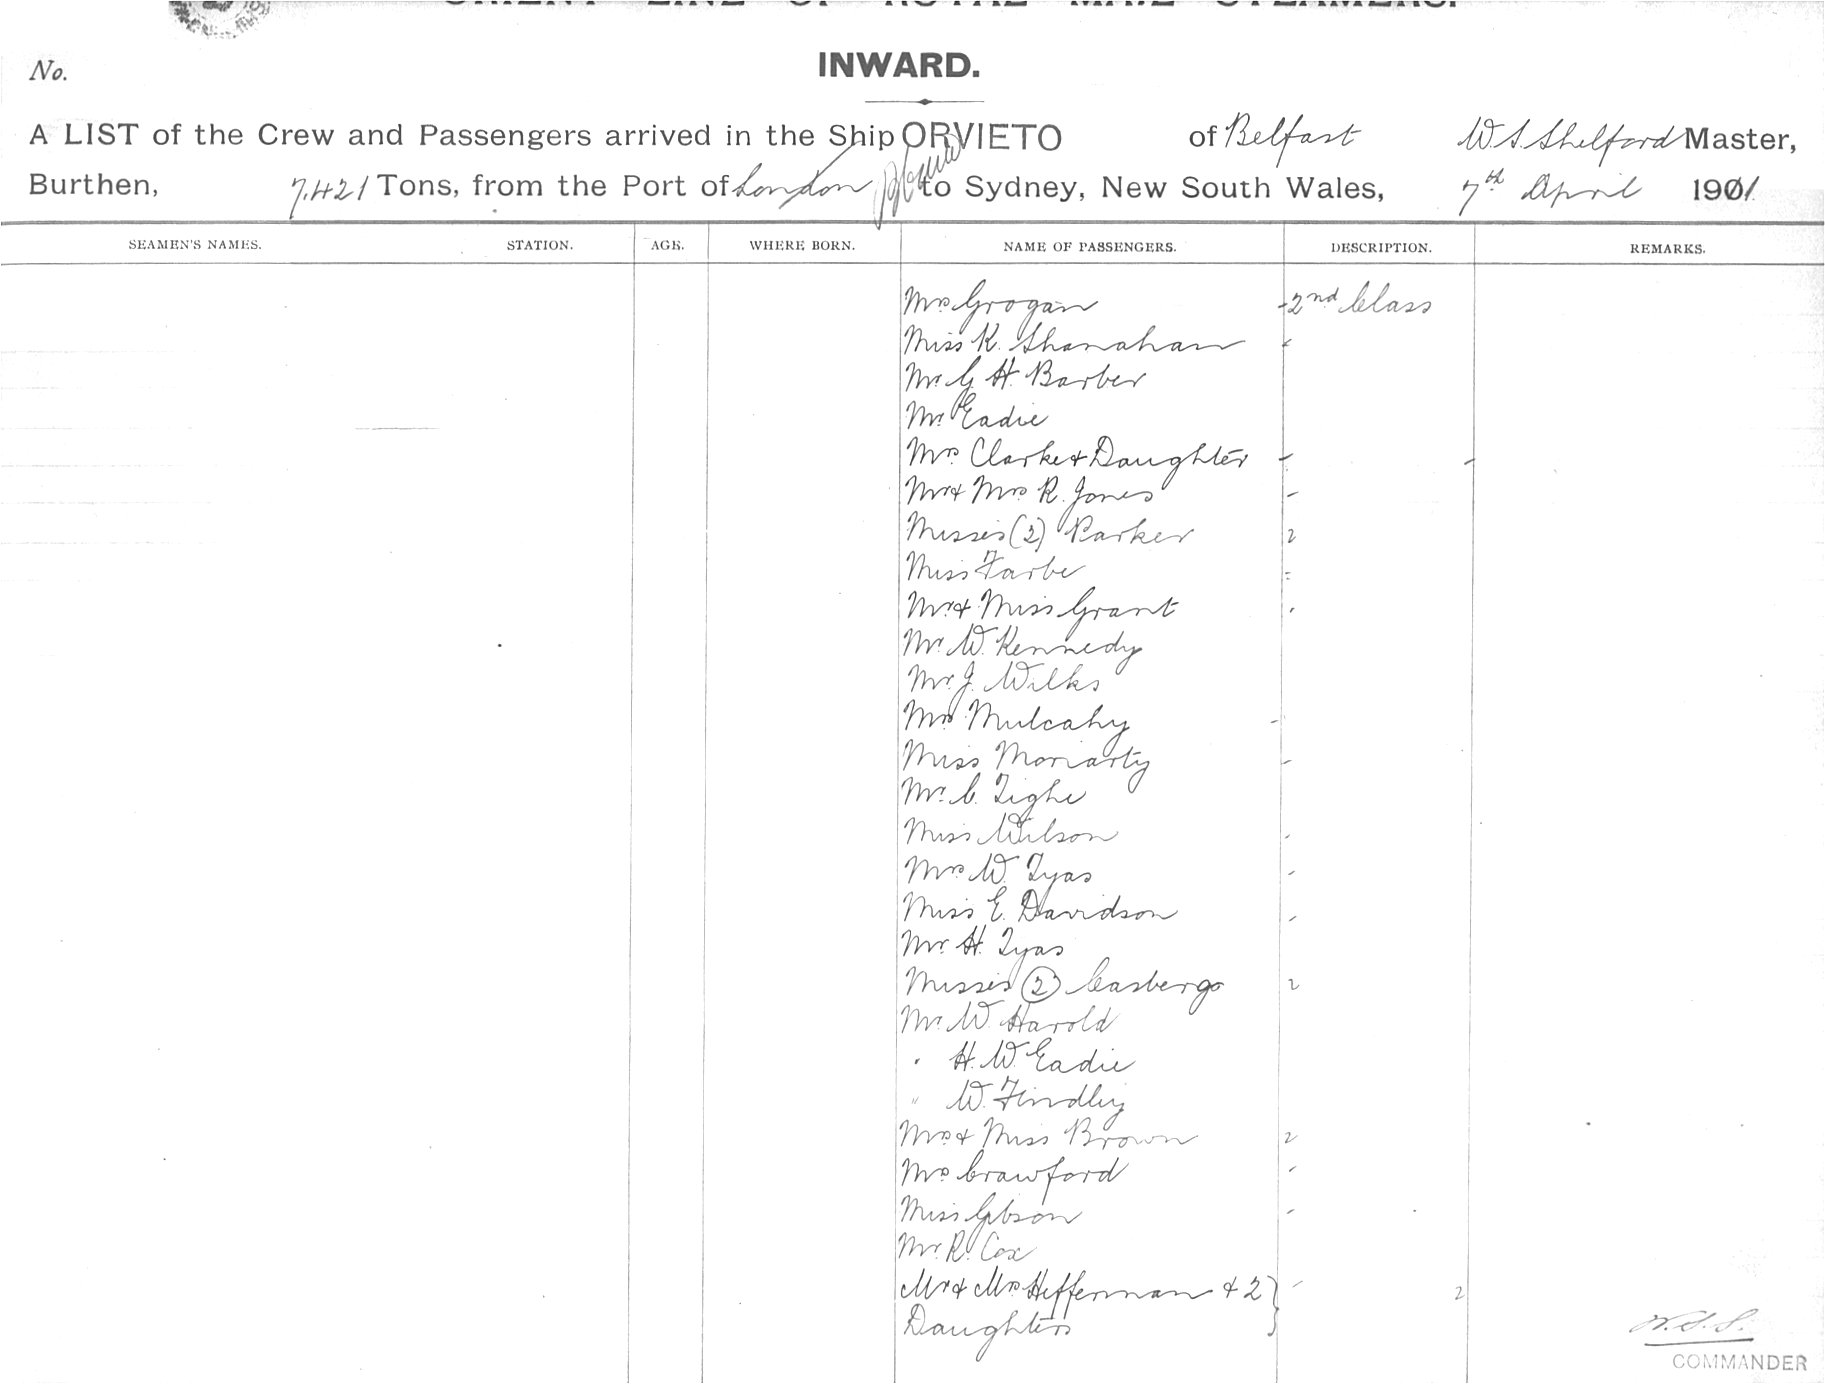 ORIENT LINE OF ROYAL MAIL STEAMERS.
INWARD.
No.
A LIST of the Crew and Passengers arrived in the Ship ORVIETO of Belfast W S Shelford Master,
Burthen, 7,421 Tons, from the Port of London to Sydney, New South Wales, 7th April 1901
SEAMEN'S NAMES. STATION. AGE. WHERE BORN. NAME OF PASSENGERS. DESCRIPTION. REMARKS.
Mrs Grogan - 2nd Class
Miss K. Shanahan
Mr. G. H. Barber
Mr. Eadie
Mrs Clarke & Daughter - -
Mr & Mrs R. Jones -
Misses (2) Parker 2
Miss Farbe
Mr & Miss Grant
Mr. W. Kennedy
Mr. J. Wilks
Mrs Mulcahy -
Miss Moriarty -
Mr. C. Tighe
Miss Wilson -
Mrs W. Tyas -
Miss E. Davidson -
Mr. H. Tyas
Misses (2) Casberg 2
Mr. W. Harold
" H. W. Eadie
" W. Findley
Mrs & Miss Brown 2
Mrs Crawford -
Miss Gibson -
Mr. R. Cox
Mr & Mrs Heffernan & 2 } - 2
Daughters
W.S.S.
COMMANDER